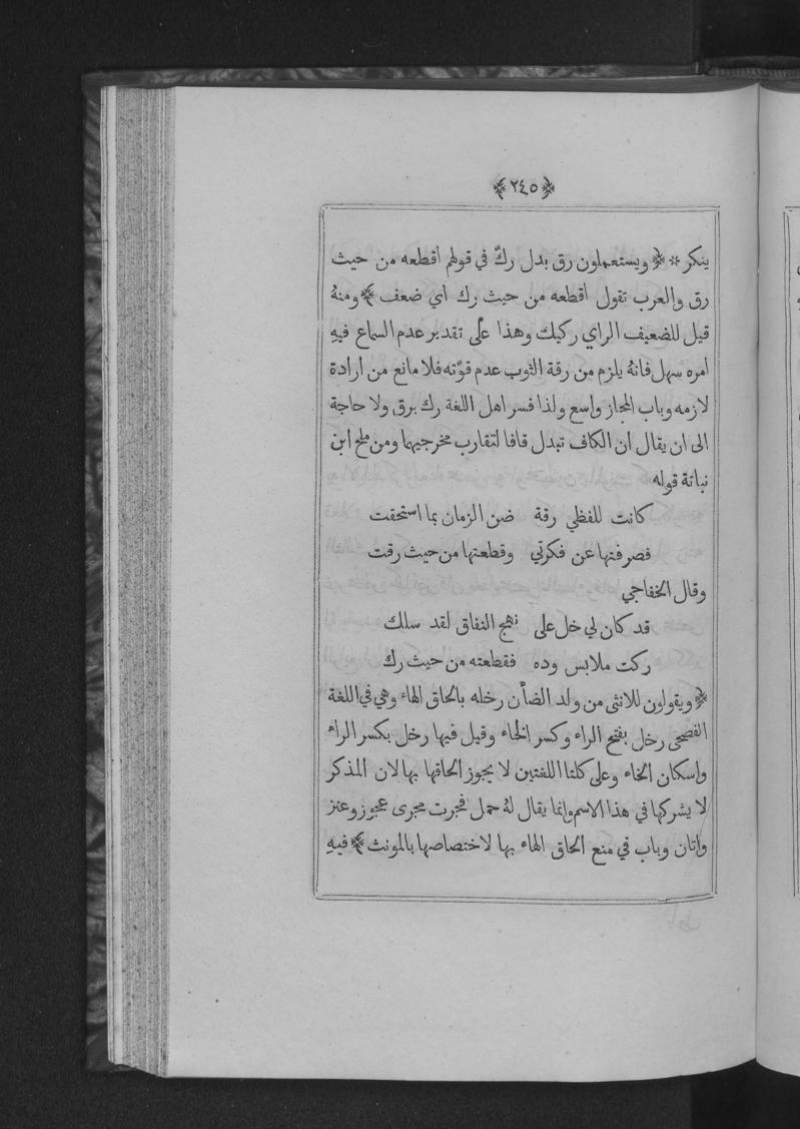 ﴿٢٤٥﴾
ينكر * ﴿ ويستعملون رق بدل ركّ في قولهم اقطعه من حيث
رق والعرب تقول اقطعه من حيث رك اي ضعف ﴾ ومنهُ
قيل للضعيف الراي ركيك وهذا على تقدير عدم السماع فيهِ
امره سهل فانهُ يلزم من رقة الثوب عدم قوّته فلا مانع من ارادة
لازمه وباب المجاز واسع ولذا فسر اهل اللغة رك برق ولا حاجة
الى ان يقال ان الكاف تبدل قافا لتقارب مخرجيهما ومن ملح ابن
نباتة قوله
كانت للفظي رقة ضن الزمان بما استحقت
فصرفتها عن فكرتي وقطعتها من حيث رقت
وقال الخفاجي
قد كان لي خل على نهج النفاق لقد سلك
ركت ملابس وده فقطعته من حيث رك
﴿ ويقولون للانثى من ولد الضأن رخله بالحاق الهاء وهي في اللغة
الفصحى رخل بفتح الراء وكسر الخاء وقيل فيها رخل بكسر الراء
واسكان الخاء وعلى كلتا اللغتين لا يجوز الحاقها بها لان المذكر
لا يشركها في هذا الاسم وانما يقال لهُ حمل فجرت مجرى عجوز وعنز
واتان وباب في منع الحاق الهاء بها لاختصاصها بالمونث ﴾ فيهِ